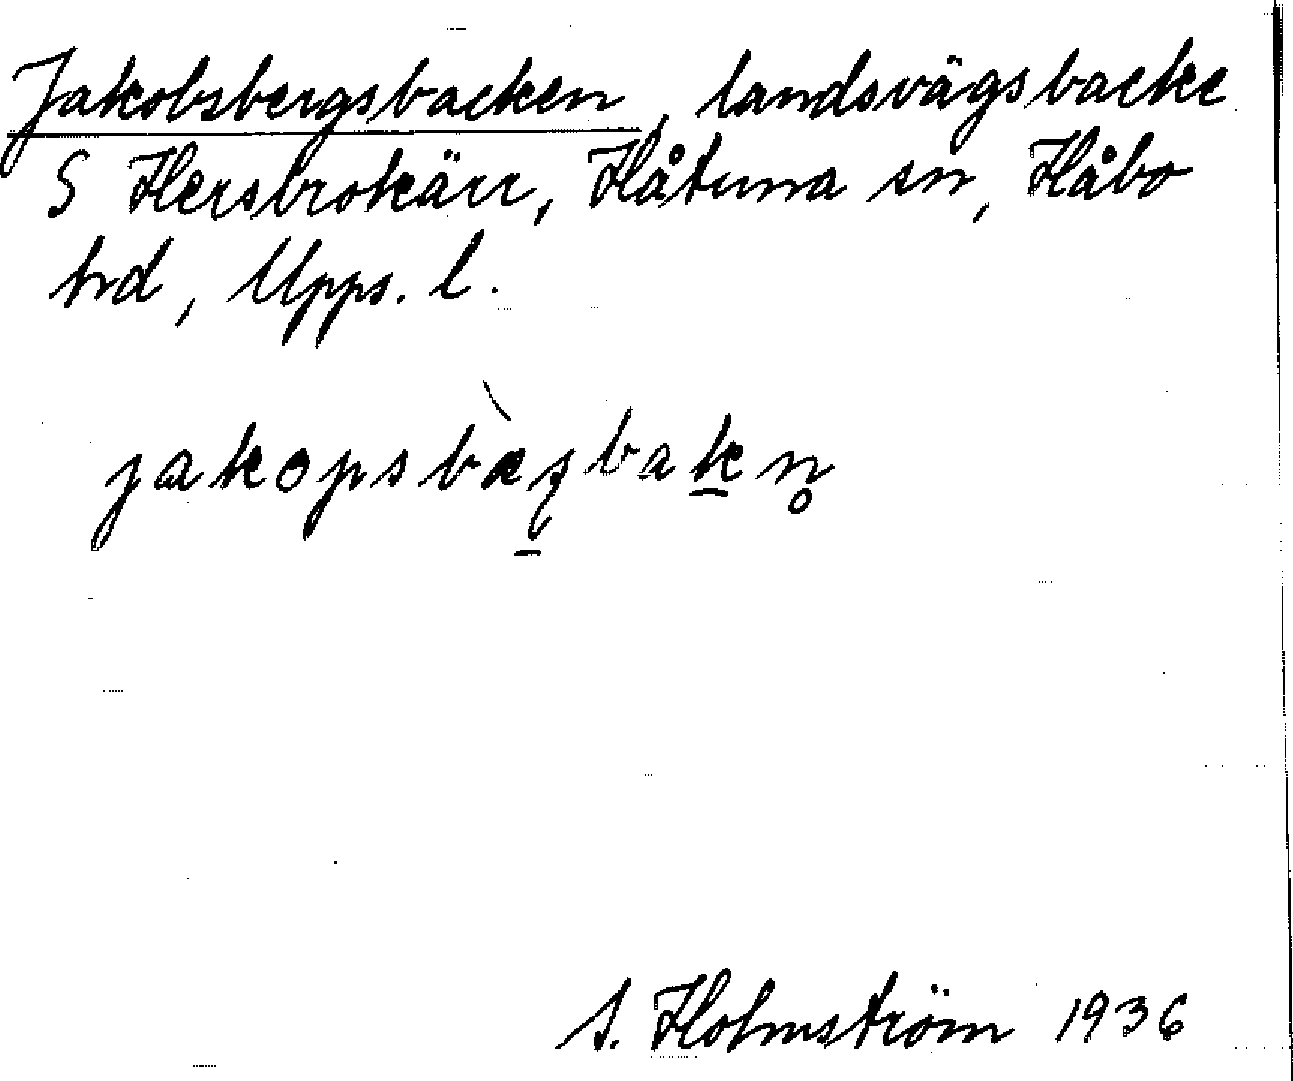 Jakobsbergsbacken, landsvägsbacke
S Hersbrokärr, Håtuna sn, Håbo
hd, Upps. l.
jakopsbæ̀ʂbak̲n̥
S. Holmström 1936